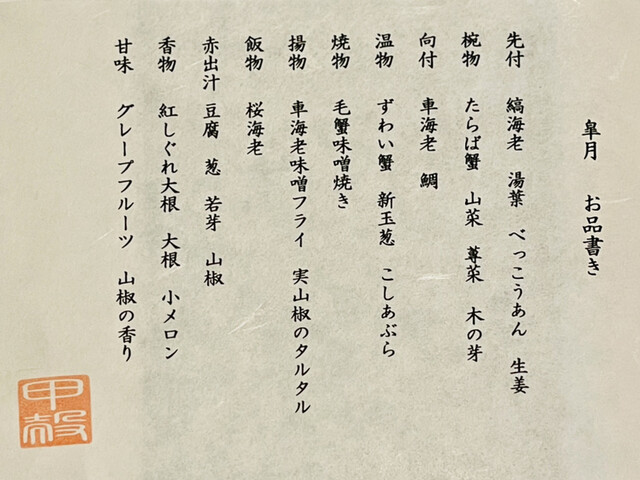 皐月 お品書き
先付 縞海老 湯葉 べっこうあん 生姜
椀物 たらば蟹 山菜 蓴菜 木の芽
向付 車海老 鯛
温物 ずわい蟹 新玉葱 こしあぶら
焼物 毛蟹味噌焼き
揚物 車海老味噌フライ 実山椒のタルタル
飯物 桜海老
赤出汁 豆腐 葱 若芽 山椒
香物 紅しぐれ大根 大根 小メロン
甘味 グレープフルーツ 山椒の香り
甲殻